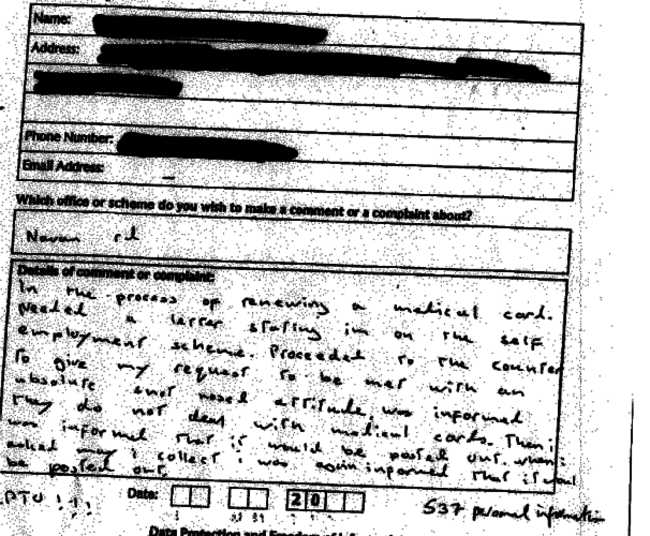 Name:
Address:
Phone Number:
Email Address: –
Which office or scheme do you wish to make a comment or a complaint about?
Navan rd
Details of comment or complaint:
In the process of renewing a medical card.
needed a letter stating im on the self
employment scheme. Proceeded to the counter
to give my request to be met with an
absolute snot nosed attitude, was informed
they do not deal with medical cards. Then i
was informed that it would be posted out. when i
asked may i collect i was again informed that it
be posted out.
PTO !!!
Date: 20
S37 personal information
Data Protection and Freedom of